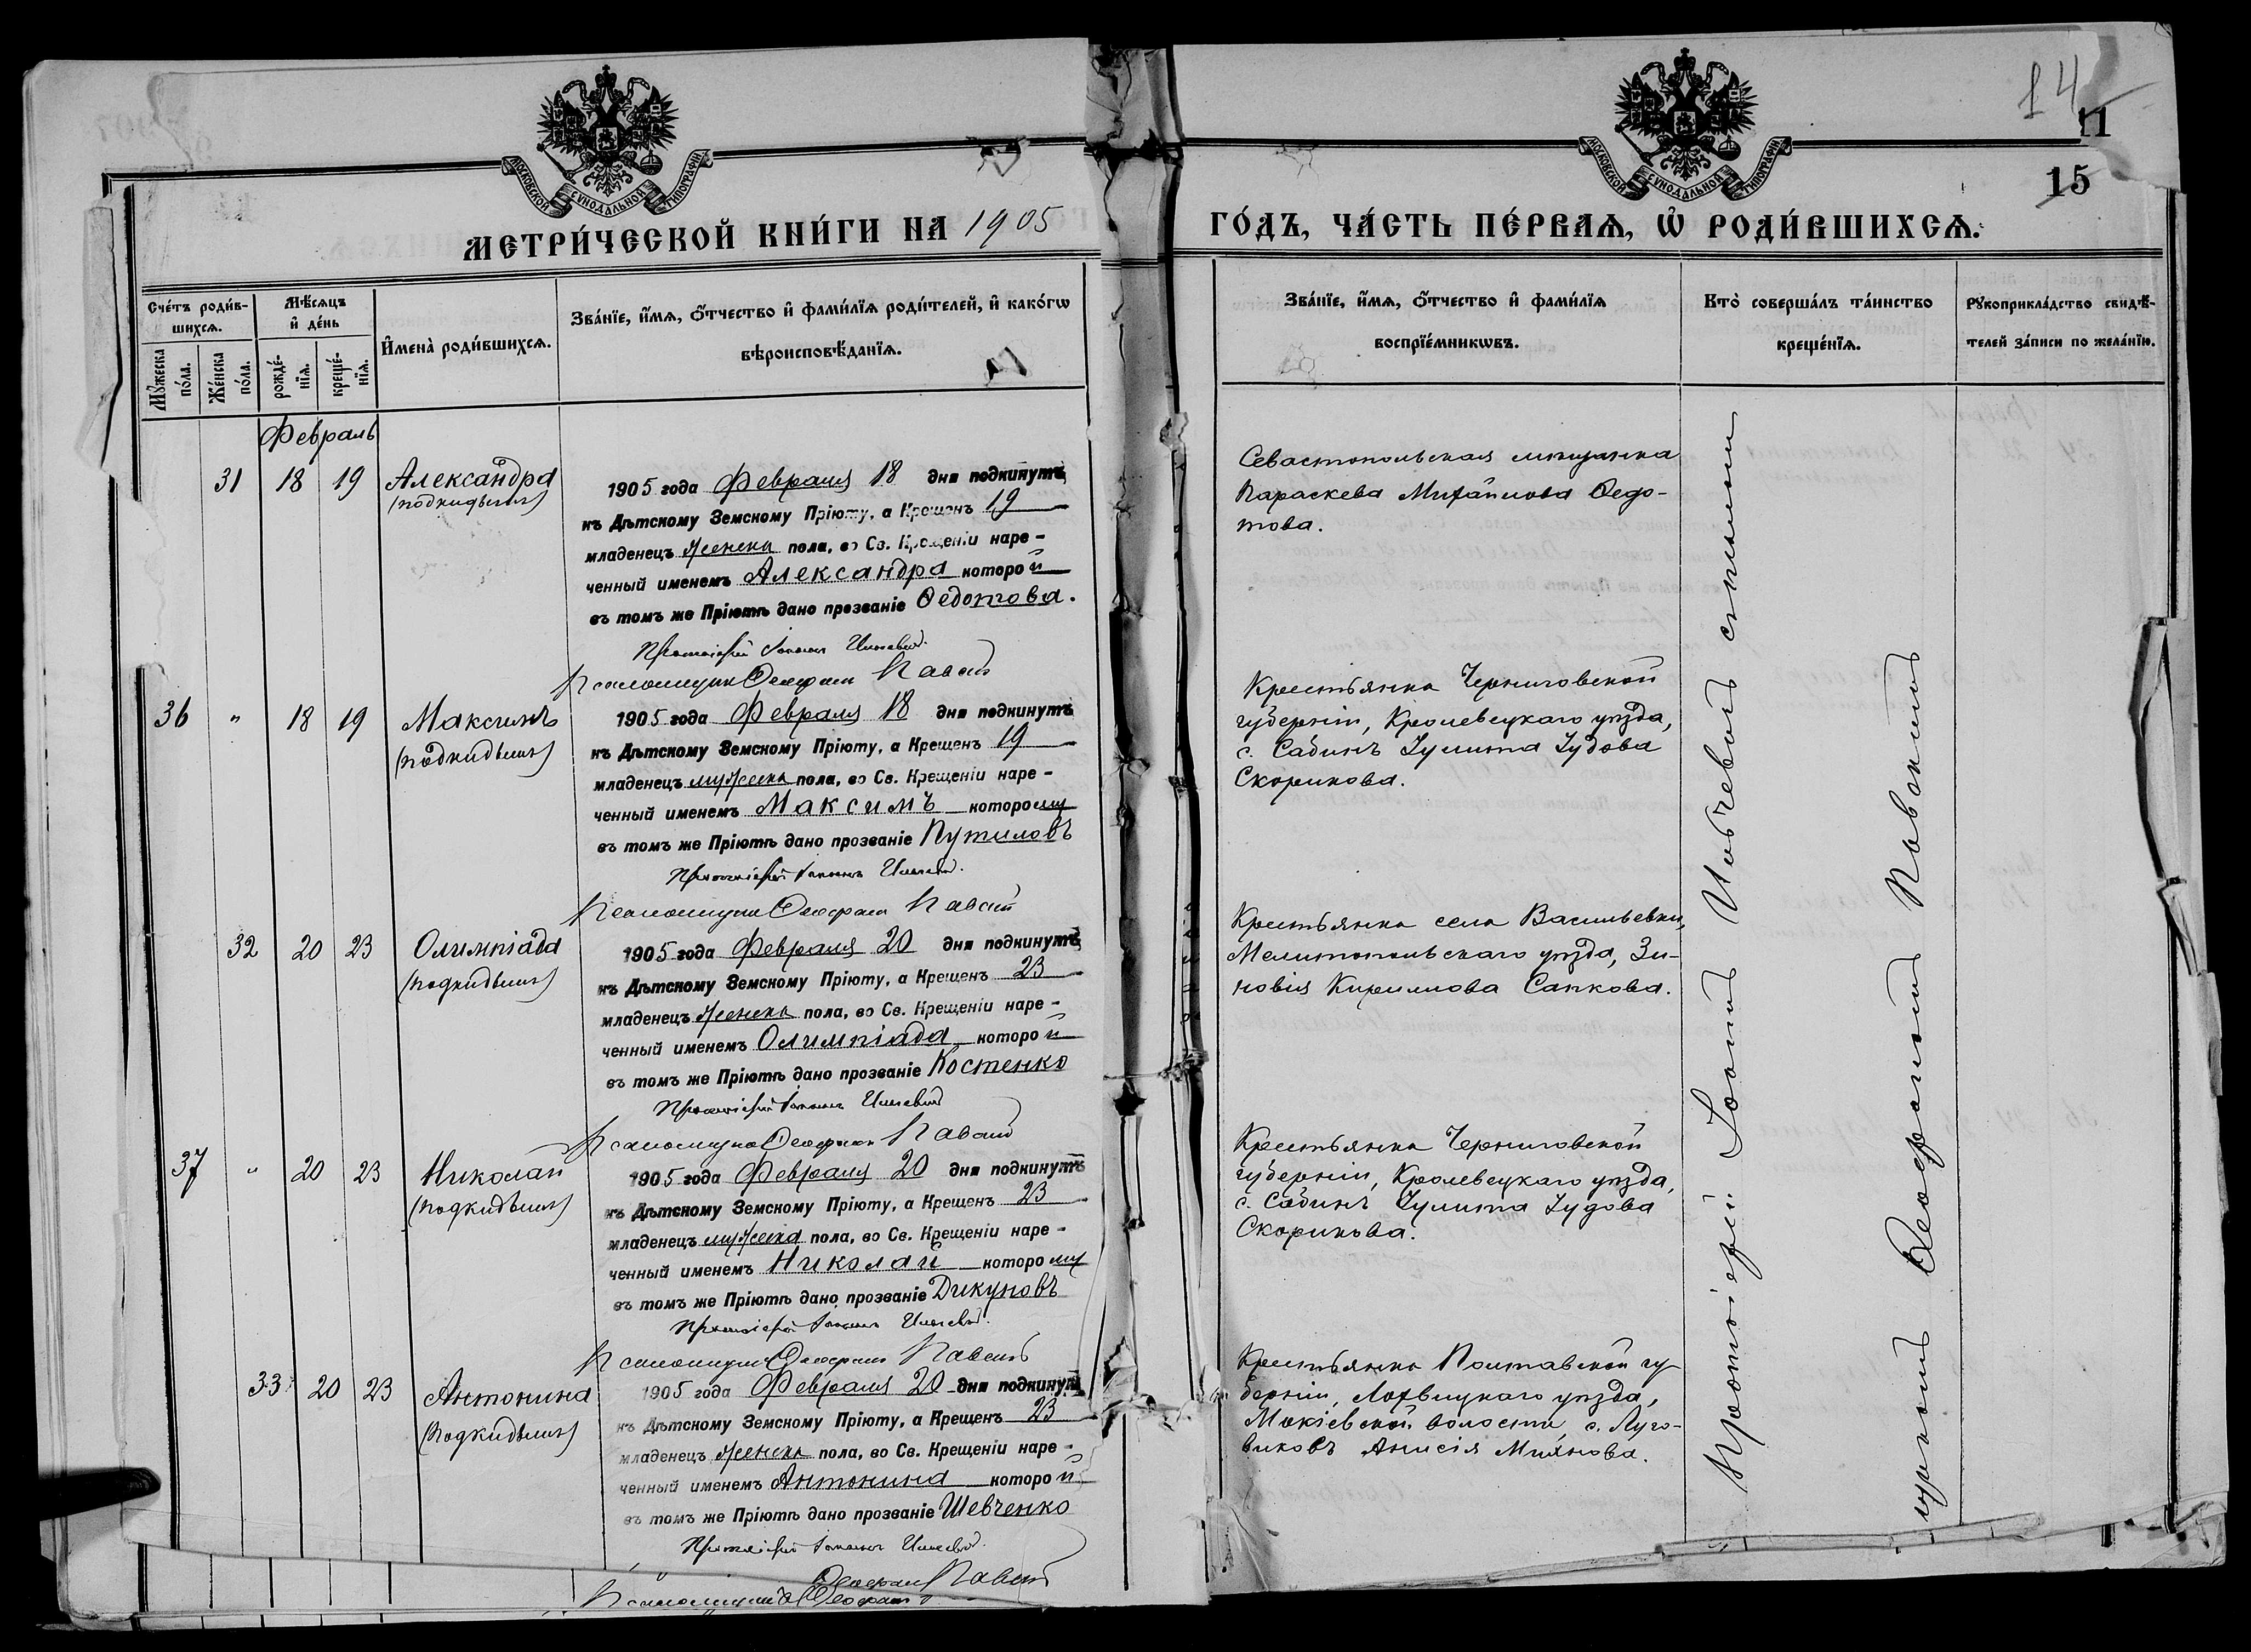 14
11
15
МОСКОВСКОЙ СѴНОДАЛЬНОЙ ТИПОГРАФІИ.
МОСКОВСКОЙ СѴНОДАЛЬНОЙ ТИПОГРАФІИ.
МЕТРИ́ЧЕСКОЙ КНИ́ГИ НА 1905
ГО́ДЪ, ЧА́СТЬ ПЕ́РВАѦ, Ѡ҆ РОДИ́ВШИХСѦ.
Счéтъ роди́в-
шихсѧ.
Мꙋ́жеска
по́ла.
Же́нска
по́ла.
Мѣ́сѧцъ
и҆ де́нь
рожде́-
нїѧ.
креще́-
нїѧ.
И҆мена̀ роди́вшихсѧ.
Зва́нїе, и҆́мѧ, ѻ҆́тчество и҆ фами́лїѧ роди́телей, и҆ како́гѡ
вѣроисповѣ́данїѧ.
Зва́нїе, и҆́мѧ, ѻ҆́тчество и҆ фами́лїѧ
воспрїе́мникѡвъ.
Кто̀ соверша́лъ та́инство
креще́нїѧ.
Рꙋкоприкла́дство свидѣ́-
телей за́писи по жела́нїю.
Февраль
31 18 19 Александра
(подкидышъ)
1905 года Февраля 18 дня подкинутъ
къ Дѣтскому Земскому Пріюту, а Крещенъ 19
младенецъ женска пола, во Св. Крещеніи наре-
ченный именемъ Александра которой
въ томъ же Пріютѣ дано прозваніе Ѳедотова.
Протоіерей Іоаннъ
Псаломщикъ Ѳеофанъ
Севастопольская мѣщанка
Параскева Михайлова Ѳедо-
това.
36 " 18 19 Максимъ
(подкидышъ)
1905 года Февраля 18 дня подкинутъ
къ Дѣтскому Земскому Пріюту, а Крещенъ 19
младенецъ мужеска пола, во Св. Крещеніи наре-
ченный именемъ Максимъ которому
въ томъ же Пріютѣ дано прозваніе Путиловъ
Протоіерей Іоаннъ
Псаломщикъ Ѳеофанъ
Крестьянка Черниговской
губерніи, Кролевецкаго уѣзда,
с. Сабинъ Іулита Іудова
Скорикова.
32 20 23 Олимпіада
(подкидышъ)
1905 года Февраля 20 дня подкинутъ
къ Дѣтскому Земскому Пріюту, а Крещенъ 23
младенецъ женска пола, во Св. Крещеніи наре-
ченный именемъ Олимпіада которой
въ томъ же Пріютѣ дано прозваніе Костенко
Протоіерей Іоаннъ
Псаломщикъ Ѳеофанъ
Крестьянка села Васильевки,
Мелитопольскаго уѣзда, Зи-
новія Кириллова Сапкова.
37 " 20 23 Николай
(подкидышъ)
1905 года Февраля 20 дня подкинутъ
къ Дѣтскому Земскому Пріюту, а Крещенъ 23
младенецъ мужеска пола, во Св. Крещеніи наре-
ченный именемъ Николай которому
въ томъ же Пріютѣ дано прозваніе Дикуновъ
Протоіерей Іоаннъ
Псаломщикъ Ѳеофанъ
Крестьянка Черниговской
губерніи, Кролевецкаго уѣзда,
с. Сабинъ Іулита Іудова
Скорикова.
33 20 23 Антонина
(подкидышъ)
1905 года Февраля 20 дня подкинутъ
къ Дѣтскому Земскому Пріюту, а Крещенъ 23
младенецъ женска пола, во Св. Крещеніи наре-
ченный именемъ Антонина которой
въ томъ же Пріютѣ дано прозваніе Шевченко
Протоіерей Іоаннъ
Ѳеофанъ
Псаломщикъ Ѳеофанъ
Крестьянка Полтавской гу-
берніи, Лохвицкаго уѣзда,
волости, с. Луго-
виковъ Анисія
Протоіерей Іоаннъ
Ѳеофаномъ